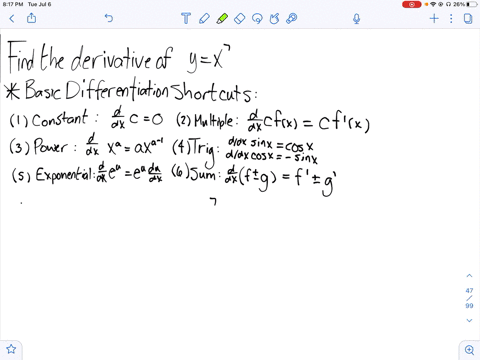 8:17 PM Tue Jul 6
26%
Find the derivative of y=x⁷
* Basic Differentiation Shortcuts:
(1) Constant: d/dx c = 0 (2) Multiple: d/dx cf(x) = cf'(x)
(3) Power: d/dx xᵃ = axᵃ⁻¹ (4) Trig: d/dx sinx = cosx
d/dx cosx = -sinx
(5) Exponential: d/dx eᵘ = eᵘ du/dx (6) Sum: d/dx (f±g) = f' ± g'
7
47
/
99